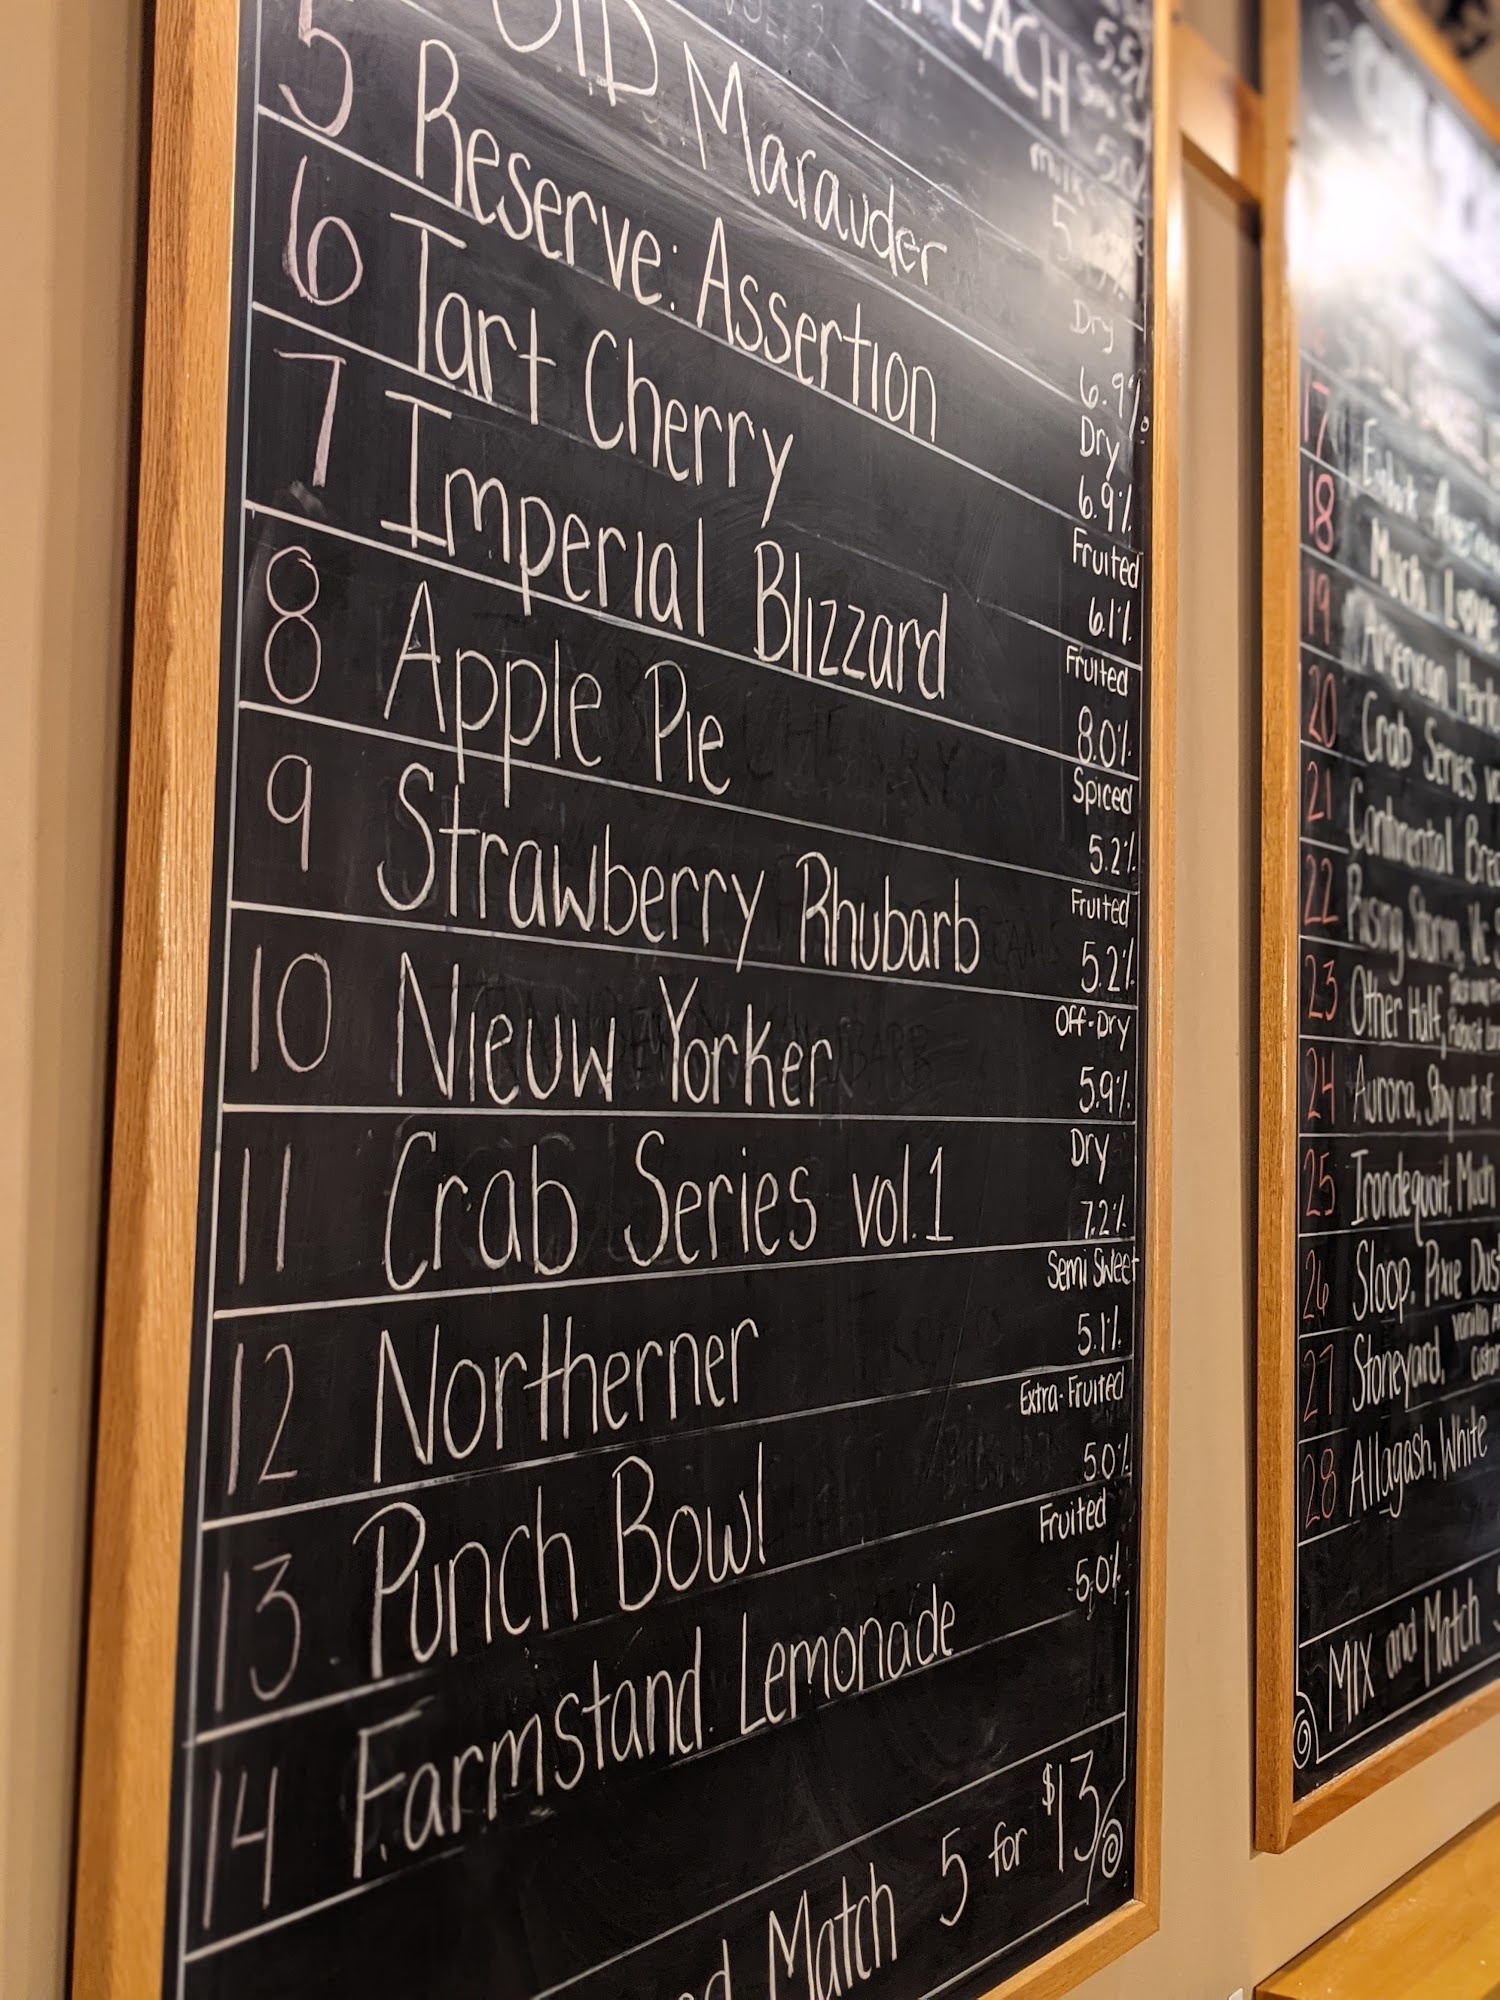 PEACH
5.5%
5.0%
Old Marauder
Dry
6.9%
5 Reserve: Assertion
Dry
6.9%
6 Tart Cherry
Fruited
6.1%
7 Imperial Blizzard
Fruited
8.0%
8 Apple Pie
Spiced
5.2%
9 Strawberry Rhubarb
Fruited
5.2%
10 Nieuw Yorker
Off-Dry
5.9%
11 Crab Series vol.1
Dry
7.2%
12 Northerner
Semi Sweet
5.1%
13 Punch Bowl
Extra-Fruited
5.0%
14 Farmstand Lemonade
Fruited
5.0%
Match 5 for $13
17
18 Much Love
19 American
20 Crab Series
21 Continental
22 Rising Storm,
23 Other Half,
24 Aurora, Stay out of
25 Irondequoit, Much
26 Sloop, Pixie Dust
27 Stoneyard, Vanilla
28 Allagash, White
Mix and Match